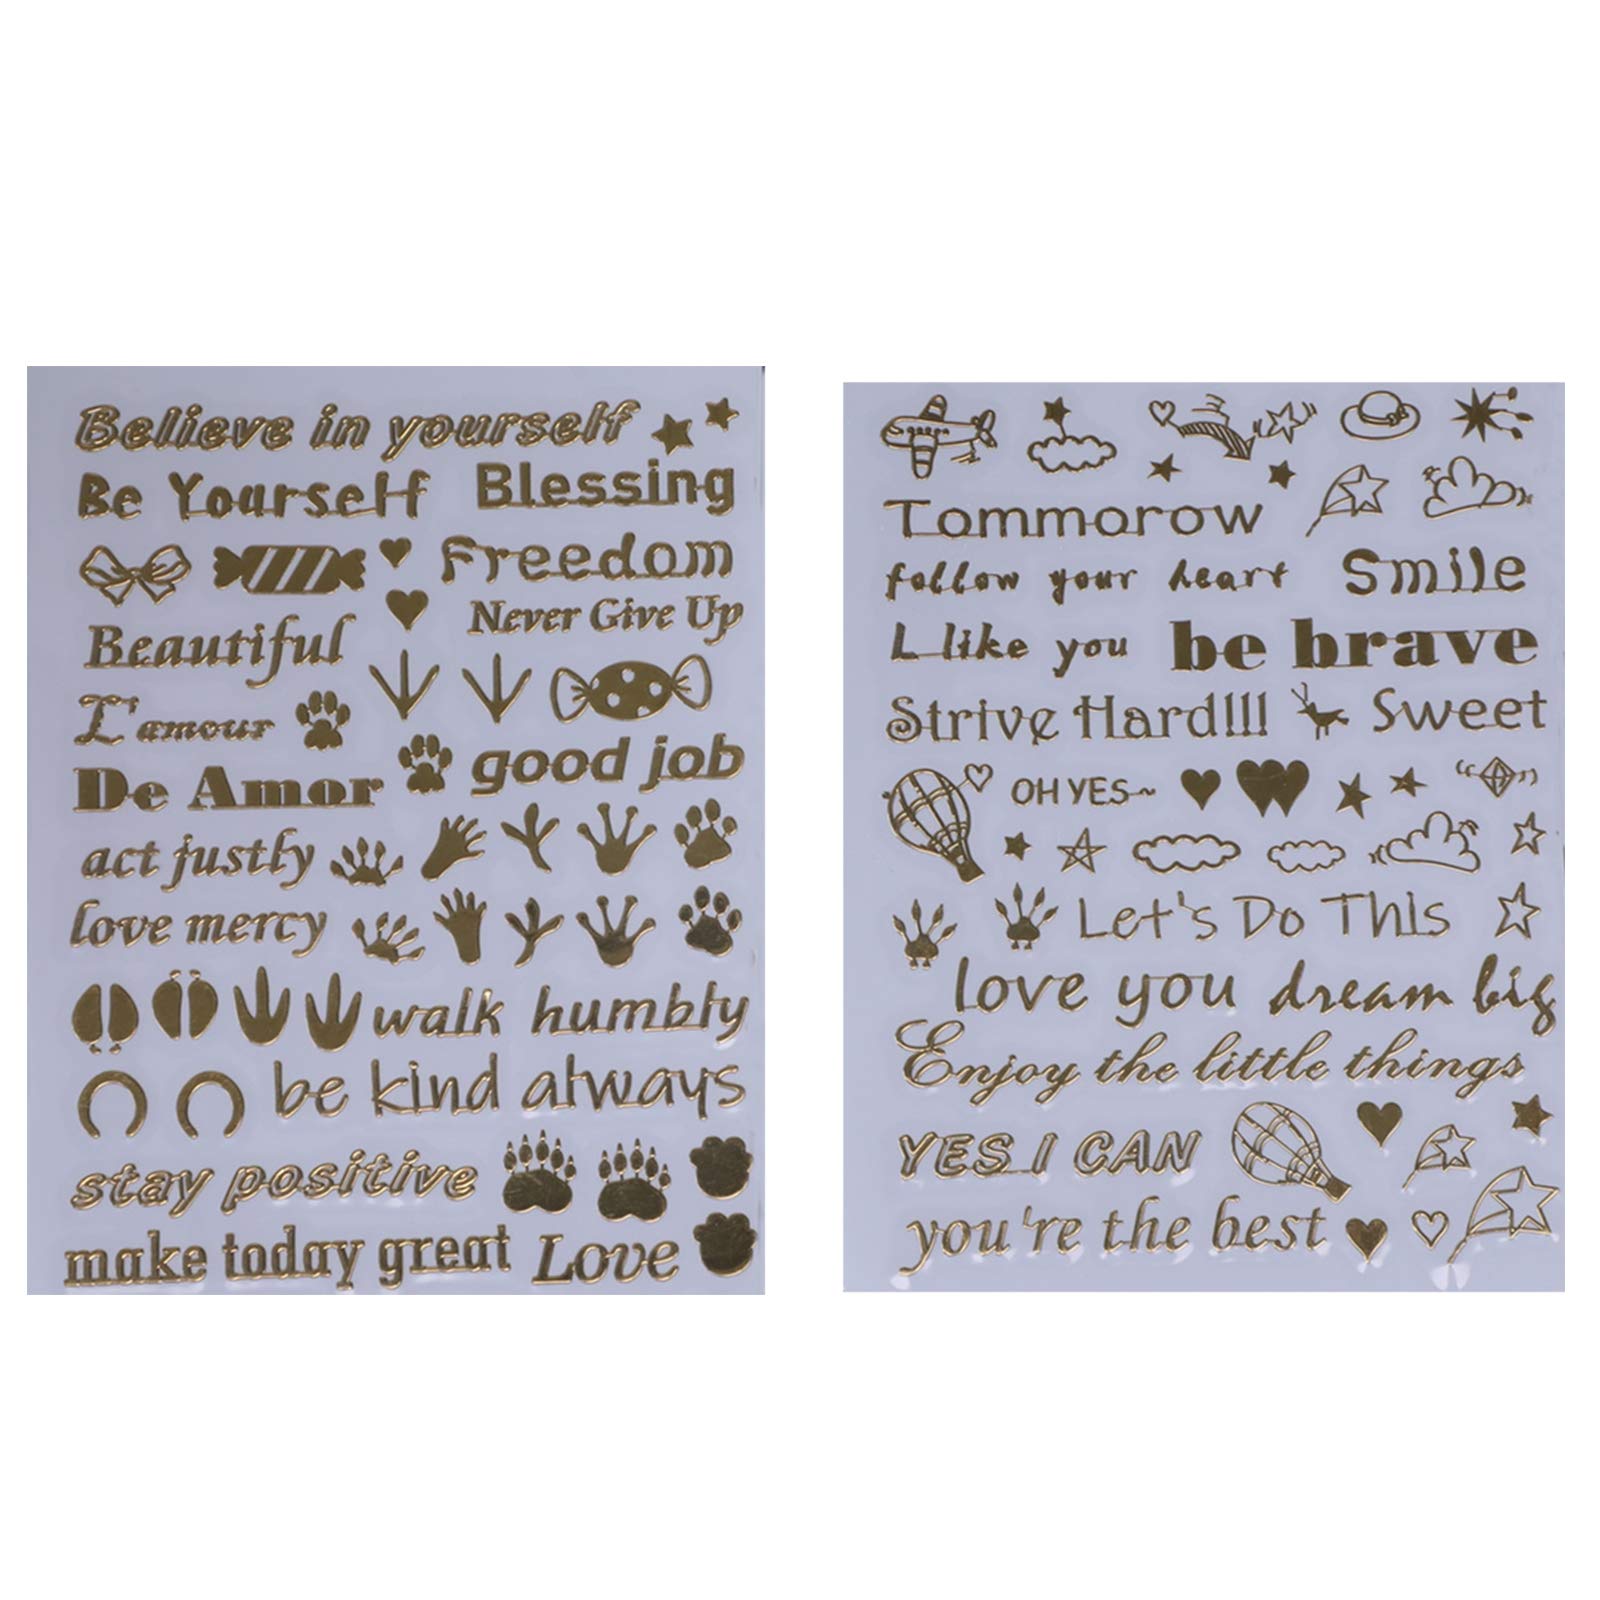 Believe in yourself
Be Yourself Blessing
Freedom
Never Give Up
Beautiful
L'amour
good job
De Amor
act justly
love mercy
walk humbly
be kind always
stay positive
make today great Love
Tommorow
follow your heart Smile
L like you be brave
Strive Hard!!! Sweet
OH YES~
Let's Do This
love you dream big
Enjoy the little things
YES I CAN
you're the best